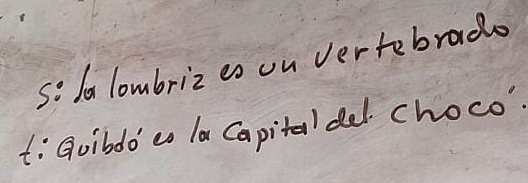 s: la lombriz es un vertebrado
t: Quibdó es la Capital del Chocó.